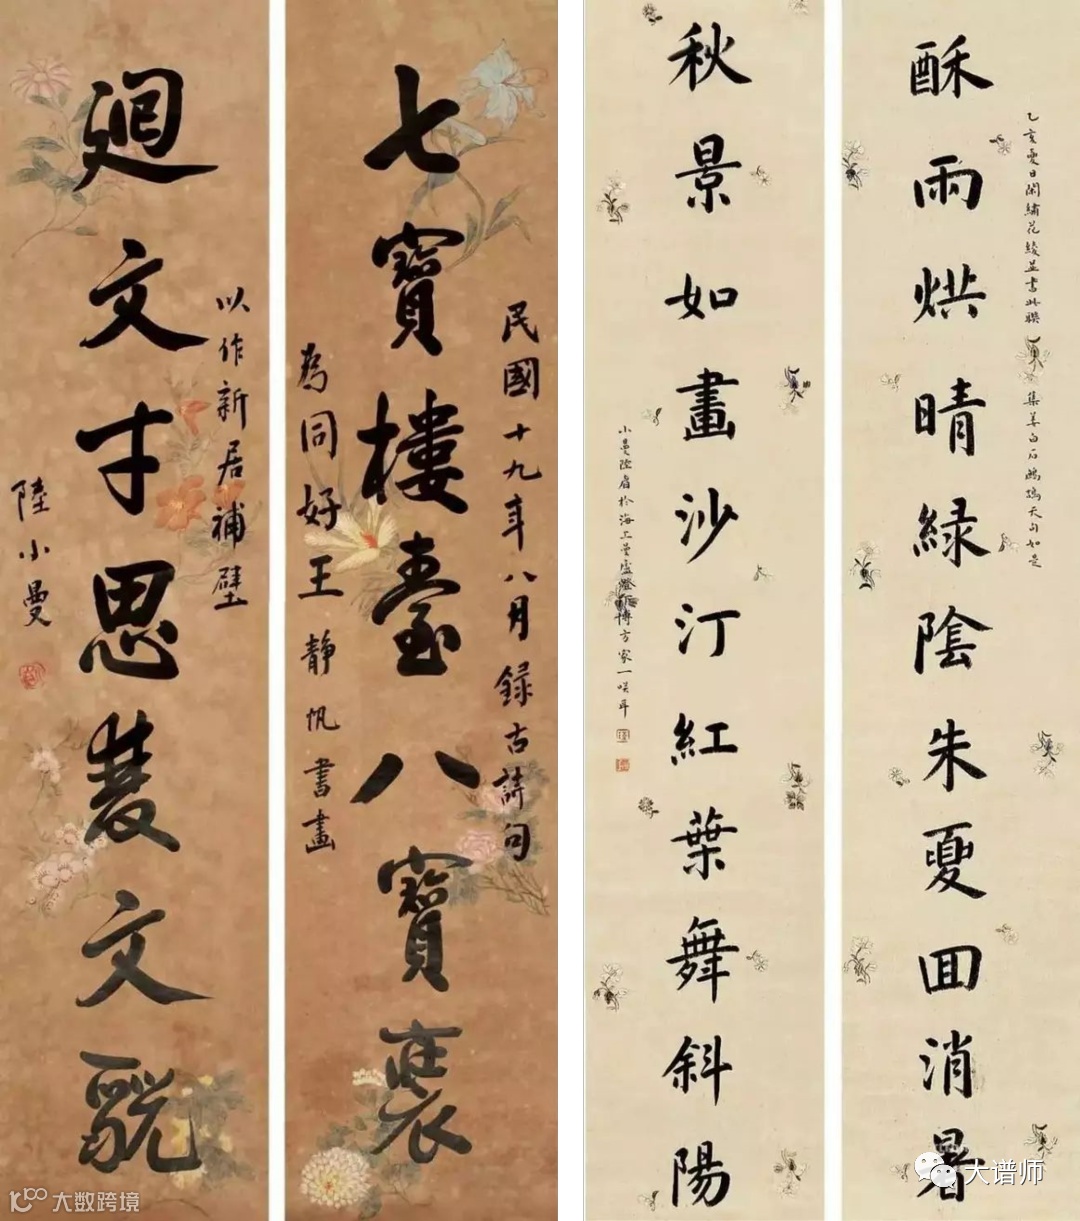 乙亥夏日閑繡花綾並書此聯 集姜白石鷓鴣天句如是
酥雨烘晴緑陰朱夏囬消暑
秋景如畫沙汀紅葉舞斜陽
小曼陸眉於海上曼廬燈下博方家一咲耳
民國十九年八月録古詩句
七寶樓臺八寶裝
為同好王靜帆書畫
以作新居補壁
廻文才思雙文貌
陸小曼
大数跨境
大谱师